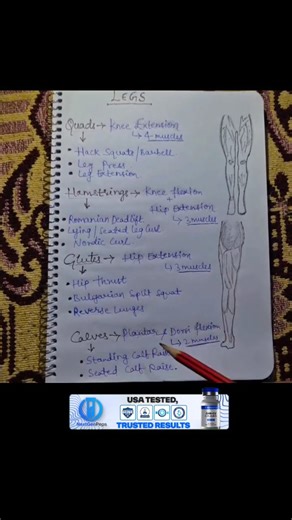 LEGS
Quads → Knee Extension
↳ 4 muscles
• Hack Squats/Barbell
• Leg Press
• Leg Extension
Hamstrings → Knee flexion
+
Hip Extension
↳ 3 muscles
• Romanian Deadlift
Lying / Seated Leg Curl
Nordic Curl
Glutes → Hip Extension
↳ 3 muscles
• Hip Thrust
• Bulgarian Split Squat
• Reverse Lunges
Calves → Plantar & Dorsi flexion
↳ 2 muscles
• Standing Calf Raise
• Seated Calf Raise.
USA TESTED,
TRUSTED RESULTS
NextGenPeps